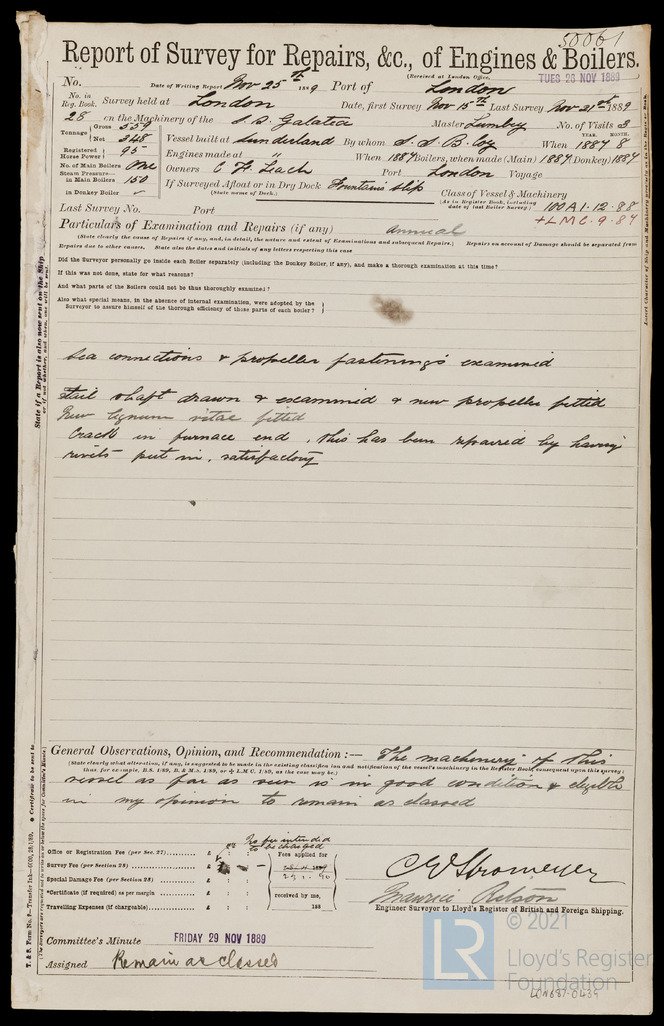 50061
Report of Survey for Repairs, &c., of Engines & Boilers.
(Received at London Office, TUES 26 NOV 1889
No. Date of Writing Report Nov 25th 1889 Port of London
No. in Reg. Book. Survey held at London Date, first Survey Nov 15th Last Survey Nov 21st 1889
28 on the Machinery of the S.S. Galatea Master Lumley No. of Visits 3
Tonnage Gross 559 Net 348 Vessel built at Sunderland By whom S. S. B. Coy When 1887 8
YEAR. MONTH.
Registered Horse Power 95 Engines made at " When 1887 Boilers, when made (Main) 1887 (Donkey) 1887
No. of Main Boilers One Owners C. F. Leach Port London Voyage
Steam Pressure— in Main Boilers 150 If Surveyed Afloat or in Dry Dock Fountains slip
(State name of Dock.)
in Donkey Boiler Class of Vessel & Machinery
(As in Register Book, including date of last Boiler Survey.) 100 A 1 . 12 . 88
+ L M C . 9 . 87
Last Survey No. Port
Particulars of Examination and Repairs (if any) annual
(State clearly the cause of Repairs if any, and, in detail, the nature and extent of Examinations and subsequent Repairs.) Repairs on account of Damage should be separated from
Repairs due to other causes. State also the dates and initials of any letters respecting this case
Did the Surveyor personally go inside each Boiler separately (including the Donkey Boiler, if any), and make a thorough examination at this time?
If this was not done, state for what reasons?
And what parts of the Boilers could not be thus thoroughly examined?
Also what special means, in the absence of internal examination, were adopted by the
Surveyor to assure himself of the thorough efficiency of those parts of each boiler?
Sea connections & propeller fastenings examined
Tail shaft drawn & examined & new propeller fitted
New lignum vitae fitted
Crack in furnace end, this has been repaired by having
rivets put in, satisfactory
General Observations, Opinion, and Recommendation :— The machinery of this
(State clearly what alteration, if any, is suggested to be made in the existing classification and notification of the vessel's machinery in the Register Book, consequent upon this survey;
thus, for example, B.S. 1/89, B. & M.S. 1/89, or + L.M.C. 1/89, as the case may be.)
vessel as far as seen is in good condition & eligible
in my opinion to remain as classed
Office or Registration Fee (per Sec. 27) £ : :
Survey Fee (per Section 28) £ : :
Special Damage Fee (per Section 28) £ : :
*Certificate (if required) as per margin £ : :
Travelling Expenses (if chargeable) £ : :
to be charged
Fees applied for
received by me,
188
C E Stromeyer
Engineer Surveyor to Lloyd's Register of British and Foreign Shipping.
Committee's Minute FRIDAY 29 NOV 1889
Assigned Remain as classed
© 2021
LR
Lloyd's Register
Foundation
LON687-0439
State if a Report is also now sent on the Ship
T. & S. Form No. 9.—Transfer Ink—6000, 28/1/89.
* Certificate to be sent to